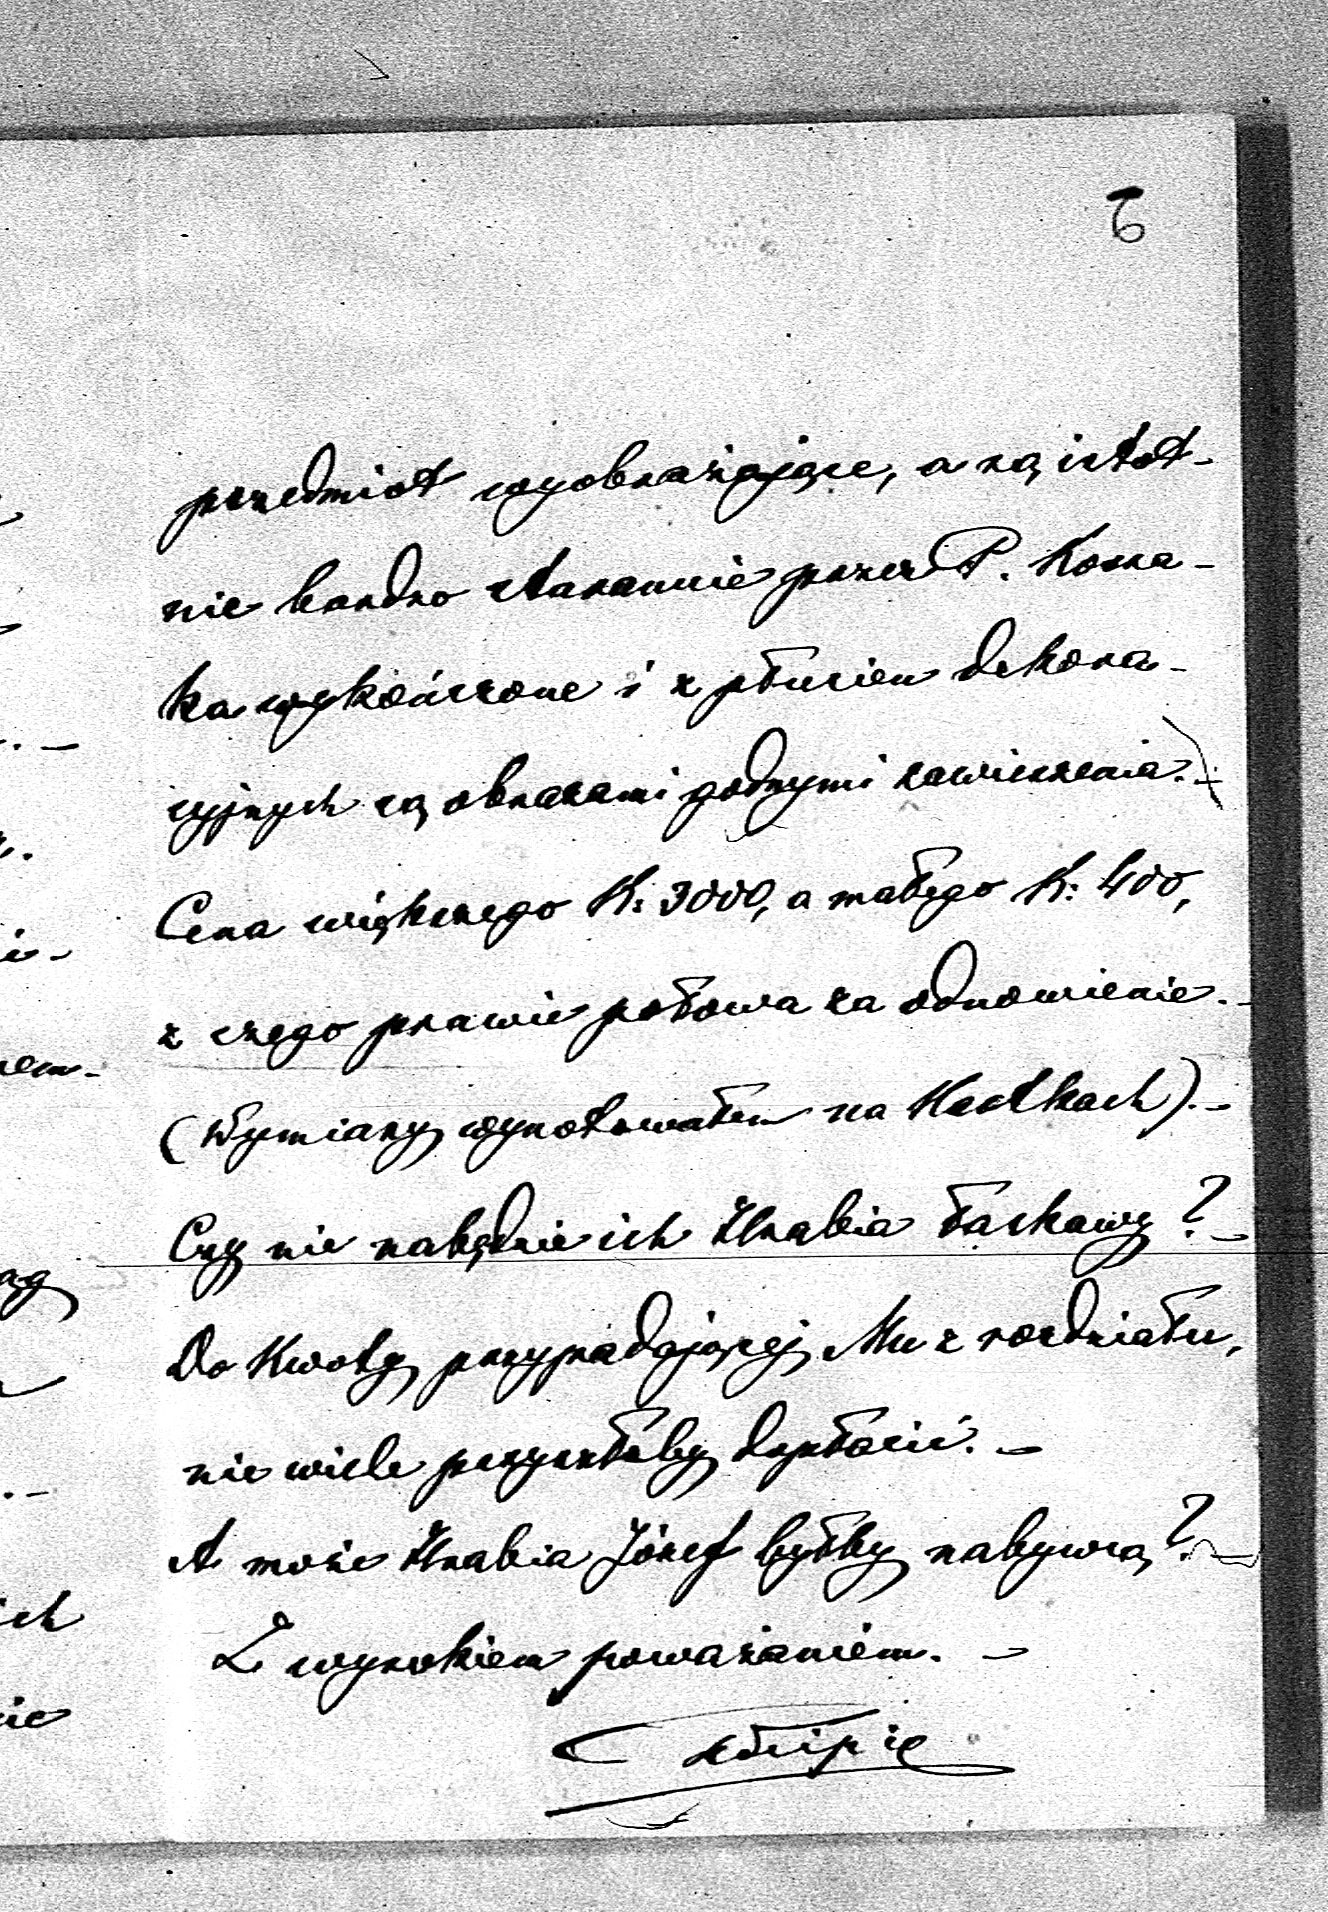 6
przedmiot wyobrażające, a są istot-
nie bardzo starannie przez P. Kossa-
ka wykończone i z płócien dekora-
cyjnych są obrazami godnymi zawieszenia. -
Cena większego K: 3000, a małego K: 400,
z czego prawie połowa za odnowienie. -
(Wymiary wynotowałem na Kartkach). -
Czy nie nabędzie ich Hrabia łaskawy? -
Do Kwoty przypadającej Mu z rozdziału,
nie wiele przyszłoby dopłacić. -
A może Hrabia Józef byłby nabywcą? -
Z wysokiem poważaniem. -